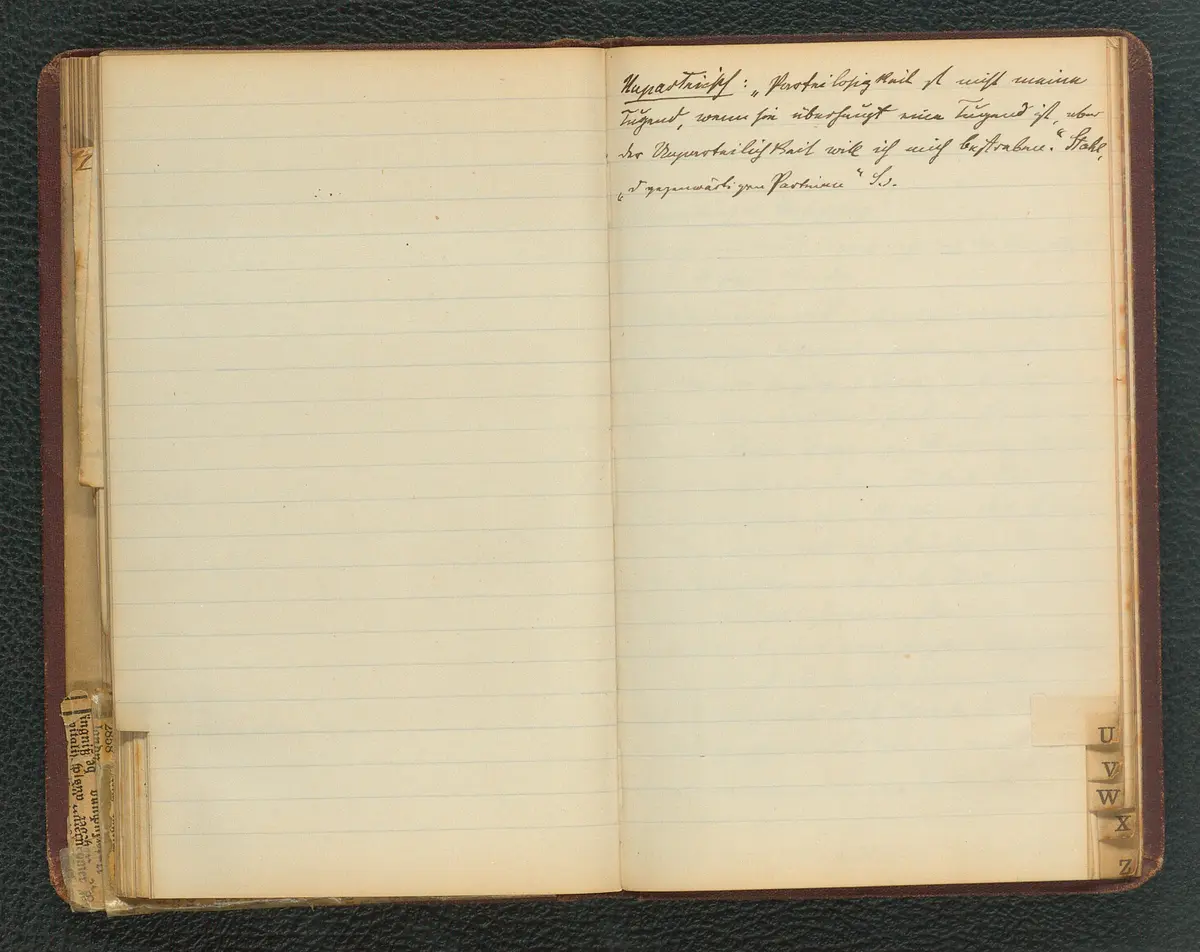 Unparteiisch: „Parteilosigkeit ist nicht meine
Tugend, wenn sie überhaupt eine Tugend ist, aber
der Unparteilichkeit will ich mich bestreben.“ Stahl,
„d gegenwärtigen Parteien“ S.
U
V
W
X
Z